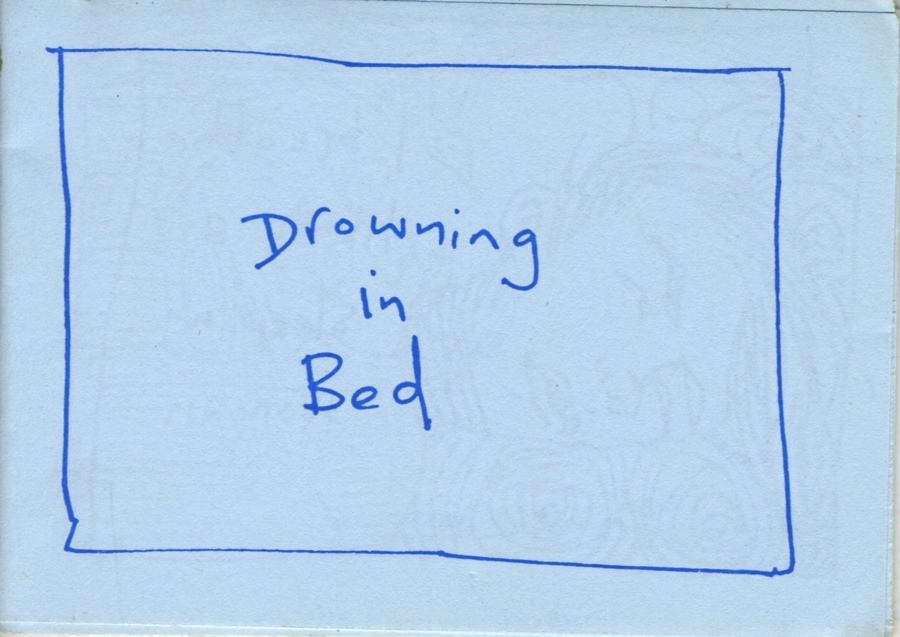 Drowning
in
Bed